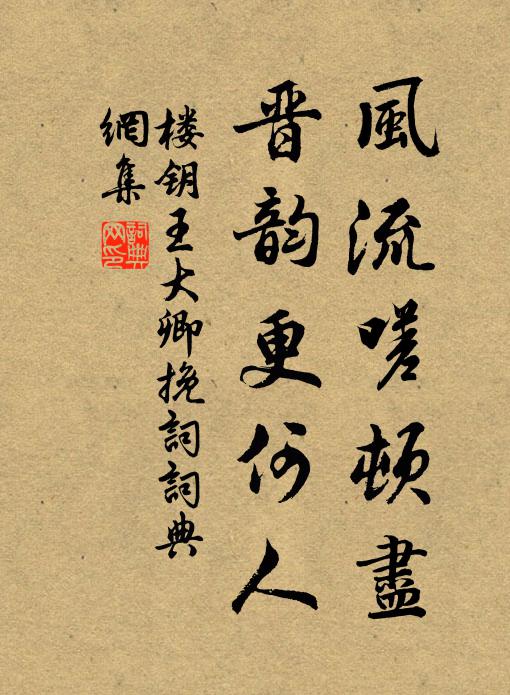 風流嗟頓盡
晋韵更何人
楼钥王大卿挽詞詞典
網集
詞典网印